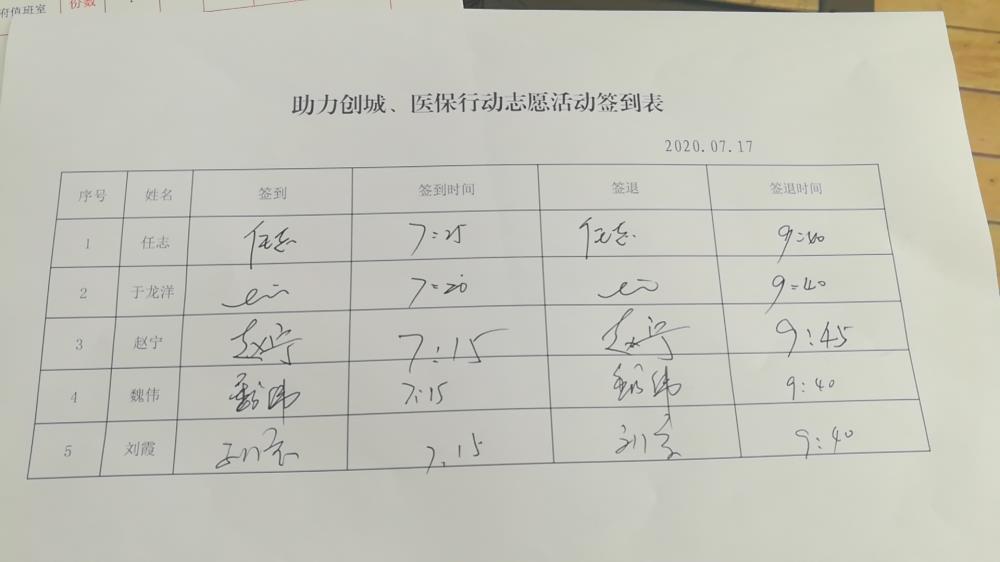 府值班室 份数
助力创城、医保行动志愿活动签到表
2020.07.17
序号 姓名 签到 签到时间 签退 签退时间
1 任志 任志 7:25 任志 9:40
2 于龙洋 7:20 9:40
3 赵宁 赵宁 7:15 赵宁 9:45
4 魏伟 魏伟 7:15 魏伟 9:40
5 刘霞 刘霞 7.15 刘霞 9:40